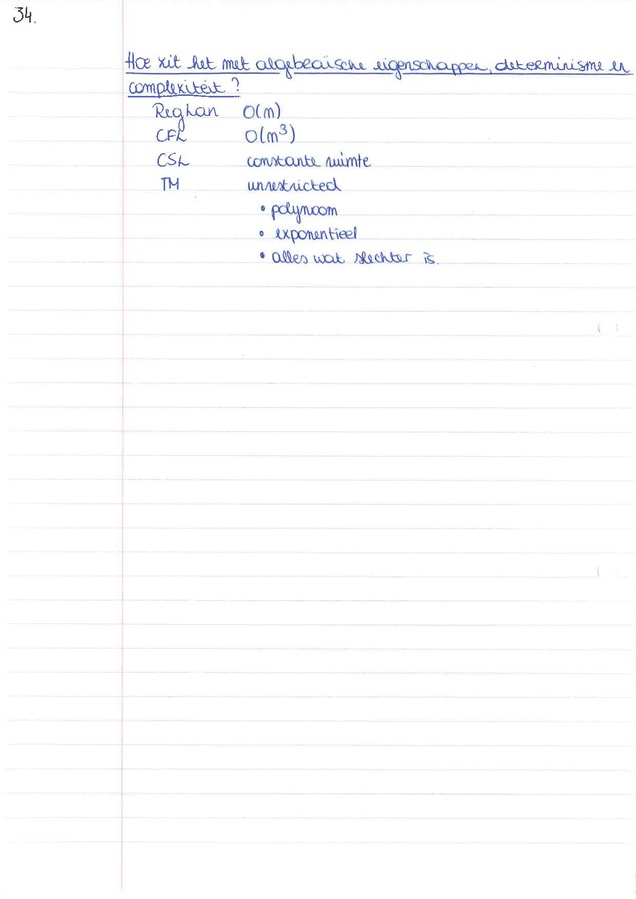 34.
Hoe zit het met algebraïsche eigenschappen, determinisme en
complexiteit?
Reglan O(n)
CFL O(n³)
CSL constante ruimte
TM unrestricted
• polynoom
• exponentieel
• alles wat slechter is.